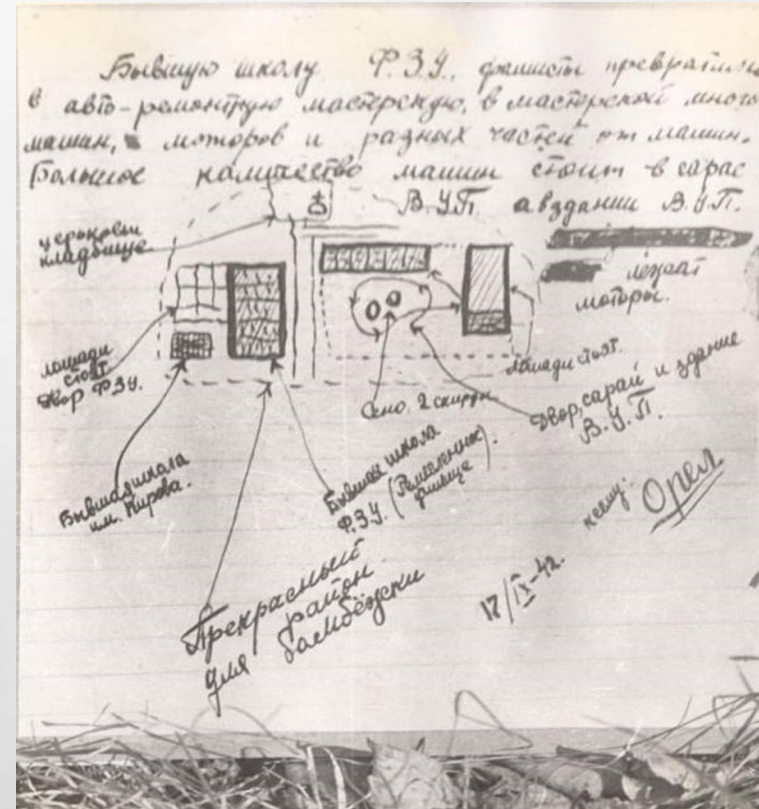 Бывшую школу Ф.З.У., фашисты превратили
в авто-ремонтную мастерскую, в мастерской много
машин, моторов и разных частей от машин.
Большое количество машин стоит в сарае
В.У.П. а в здании В.У.П.
лежат
моторы.
церковь
кладбище
лошади
стоят
Двор Ф.З.У.
лошади стоят.
Сено. 2 скирды
Двор, сарай и здание
В.У.П.
Бывшая школа
им. Кирова.
Бывшая школа
Ф.З.У. (Ремесленник
училище).
Прекрасный
район
для
бомбёжки
Орел
12/IX-42.